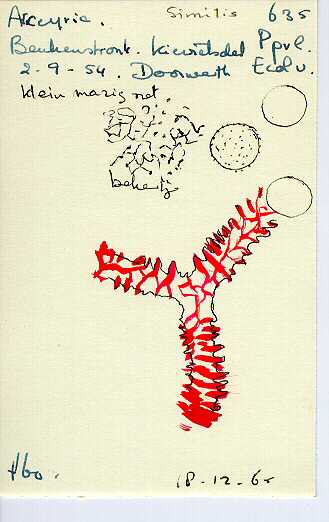 Arcyria. Similis 635
Beukenstronk. Kievitsdel Ppvl.
2-9-54. Doorwerth Ecol v.
klein mazig net
bekertj
460.
18-12-60